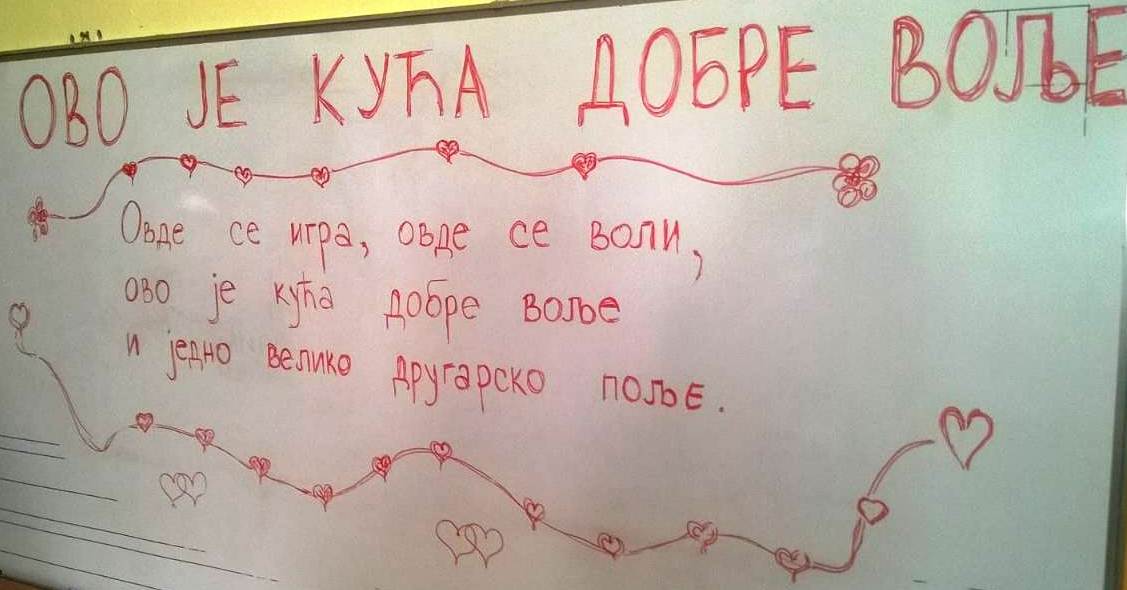 ОВО ЈЕ КУЋА ДОБРЕ ВОЉЕ
Овде се игра, овде се воли,
ово је кућа добре воље
и једно велико другарско поље.